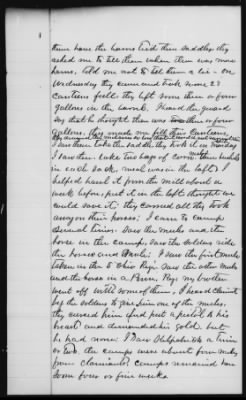 them have the harness tied their saddles, they
asked me to tell them when there was more
harness, told me not to tell them a lie - on
Wednesday they came and took some 28
canteens full; they left some three or four
gallons in the barrel. I heard the guard
say that he thought there was three or four
gallons, they made me fill their canteens,
I saw them take the saddle, they took it on Monday
I saw them take two bags of corn meal, three bushels
in each sack, meal was in the loft, I
helped haul it from the mill about a
week before, put it in the loft thought we
could save it; they carried all they took
away on their horses; I came to camps
several times. Saw the mules and the
horse in the camp, saw the soldiers ride
the horses and mules; I saw the first mule
taken in the 5 Ohio Regt, saw the other mules
and the horse in a Penn. Reg. my brother
went off with some of them, I heard claimant
beg the soldiers to give him one of the mules,
they cursed him and put a pistol to his
heart and demanded his gold, but
he had none; I saw Kilpatrick a time
or two, the camps were about four miles
from claimants, camps remained here
some four or five weeks.